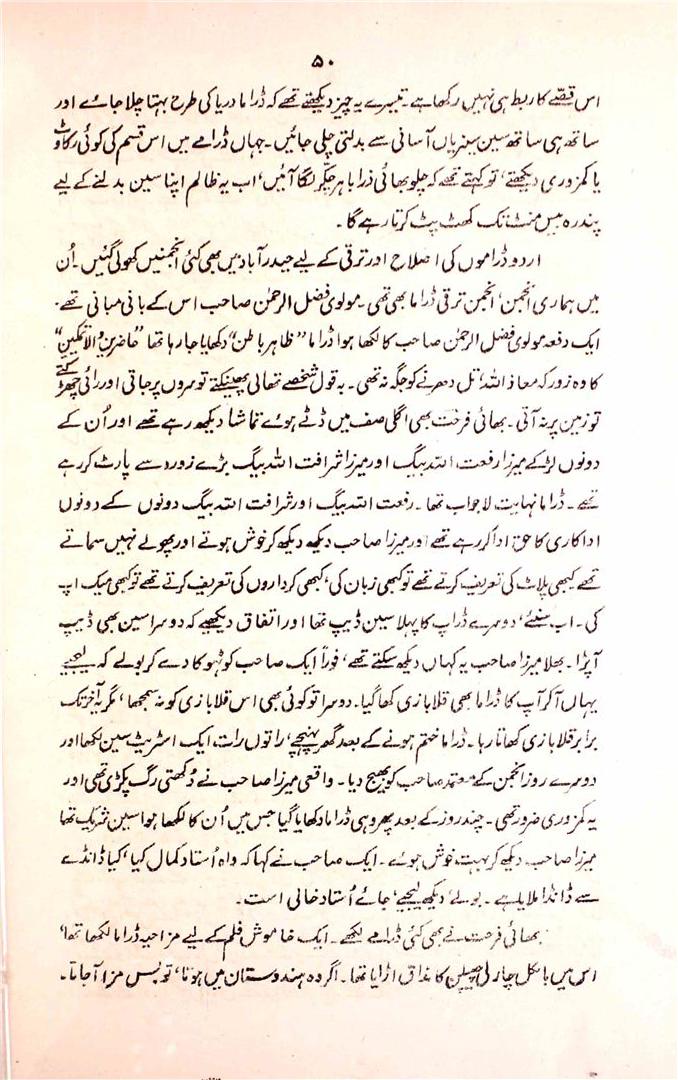 ۵۰
اس قصّے کا ربط ہی نہیں رکھا ہے۔ تیسرے یہ چیز دیکھتے تھے کہ ڈراما دریا کی طرح بہتا چلا جائے اور
ساتھ ہی ساتھ سین سینریاں آسانی سے بدلتی چلی جائیں۔ جہاں ڈرامے میں اس قسم کی کوئی رکاوٹ
یا کمزوری دیکھتے، تو کہتے تھے کہ چلو بھائی ذرا باہر چکّر لگا آئیں، اب یہ ظالم اپنا سین بدلنے کے لیے
پندرہ بیس منٹ تک کھٹ پٹ کرتا رہے گا۔
اردو ڈراموں کی اصلاح اور ترقی کے لیے حیدرآباد میں بھی کئی انجمنیں کھولی گئیں۔ اُن
میں ہماری انجمن، انجمن ترقی ڈراما بھی تھی۔ مولوی فضل الرحمٰن صاحب اس کے بانی مبانی تھے۔
ایک دفعہ مولوی فضل الرحمٰن صاحب کا لکھا ہوا ڈراما "ظاہر باطن" دکھایا جا رہا تھا "حاضرین والاتمکین"
کا وہ زور کہ معاذ اللہ، تل دھرنے کو جگہ نہ تھی۔ بہ قول شخصے تھالی پھینکتے تو سروں پر جاتی اور رائی چھڑکتے
تو زمین پر نہ آتی۔ بھائی فرحت بھی اگلی صف میں ڈٹے ہوئے تماشا دیکھ رہے تھے اور اُن کے
دونوں لڑکے میرزا رفعت اللہ بیگ اور میرزا شرافت اللہ بیگ بڑے زوروں سے پارٹ کر رہے
تھے۔ ڈراما نہایت لاجواب تھا۔ رفعت اللہ بیگ اور شرافت اللہ بیگ دونوں کے دونوں
اداکاری کا حق ادا کر رہے تھے اور میرزا صاحب دیکھ دیکھ کر خوش ہوتے اور پھولے نہیں سماتے
تھے کبھی پلاٹ کی تعریف کرتے تھے تو کبھی زبان کی، کبھی کرداروں کی تعریف کرتے تھے تو کبھی میک اپ
کی۔ اب سنئے، دوسرے ڈراپ کا پہلا سین ڈیپ تھا اور اتفاق دیکھیے کہ دوسرا سین بھی ڈیپ
آپڑا۔ بھلا میرزا صاحب یہ کہاں دیکھ سکتے تھے، فوراً ایک صاحب کو ٹہوکا دے کر بولے کہ لیجیے
یہاں آکر آپ کا ڈراما بھی قلابازی کھا گیا۔ دوسرا تو کوئی بھی اس قلابازی کو نہ سمجھا، مگر یہ آخر تک
برابر قلابازی کھاتا رہا۔ ڈراما ختم ہونے کے بعد گھر پہنچے، راتوں رات، ایک اسٹریٹ سین لکھا اور
دوسرے روز انجمن کے معتمد صاحب کو بھیج دیا۔ واقعی میرزا صاحب نے دُکھتی رگ پکڑی تھی اور
یہ کمزوری ضرور تھی۔ چند روز کے بعد پھر وہی ڈراما دکھایا گیا جس میں اُن کا لکھا ہوا سین شریک تھا
میرزا صاحب دیکھ کر بہت خوش ہوئے۔ ایک صاحب نے کہا کہ واہ اُستاد کمال کیا، کیا ڈانڈے
سے ڈانڈا ملایا ہے۔ بولے، دیکھ لیجیے، جائے اُستاد خالی است۔
بھائی فرحت نے بھی کئی ڈرامے لکھے۔ ایک خاموش فلم کے لیے مزاحیہ ڈراما لکھا تھا،
اس میں بالکل چارلی چپلن کا مذاق اڑایا تھا۔ اگر وہ ہندوستان میں ہوتا، تو بس مزا آجاتا۔